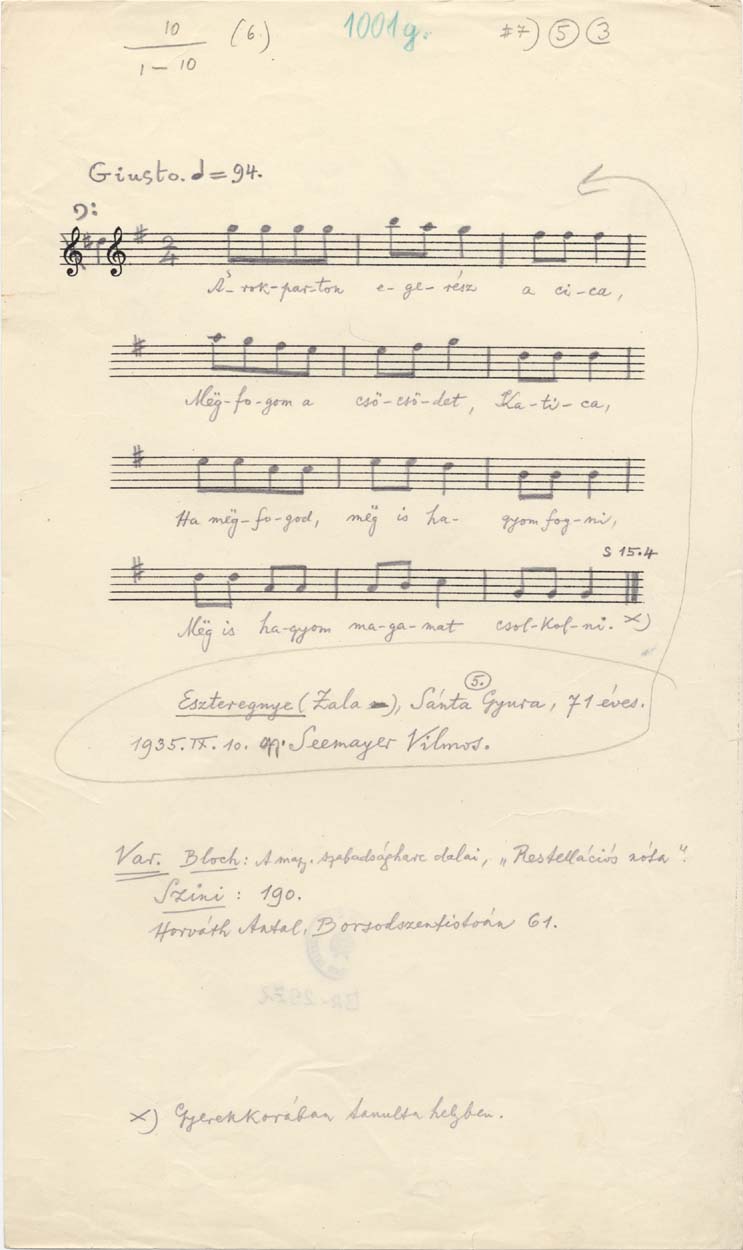 10 (6.) 1001g. #7) ⑤ ③
1–10
Giusto. d=94.
2/4
Á-rok-par-ton e-ge-rész a ci-ca,
Mëg-fo-gom a csö-csö-det, Ka-ti-ca,
Ha mëg-fo-god, mëg is ha- gyom fog-ni,
S 15.4
Mëg is ha-gyom ma-ga-mat csol-kol-ni. x)
5.
Eszteregnye (Zala), Sánta Gyura, 71 éves.
1935. IX. 10. Seemayer Vilmos.
Var. Bloch: A mag. szabadságharc dalai, „Restellációs nóta".
Szini: 190.
Horváth Antal, Borsodszentistván 61.
BR-2972
x) Gyerekkorában tanulta helyben.